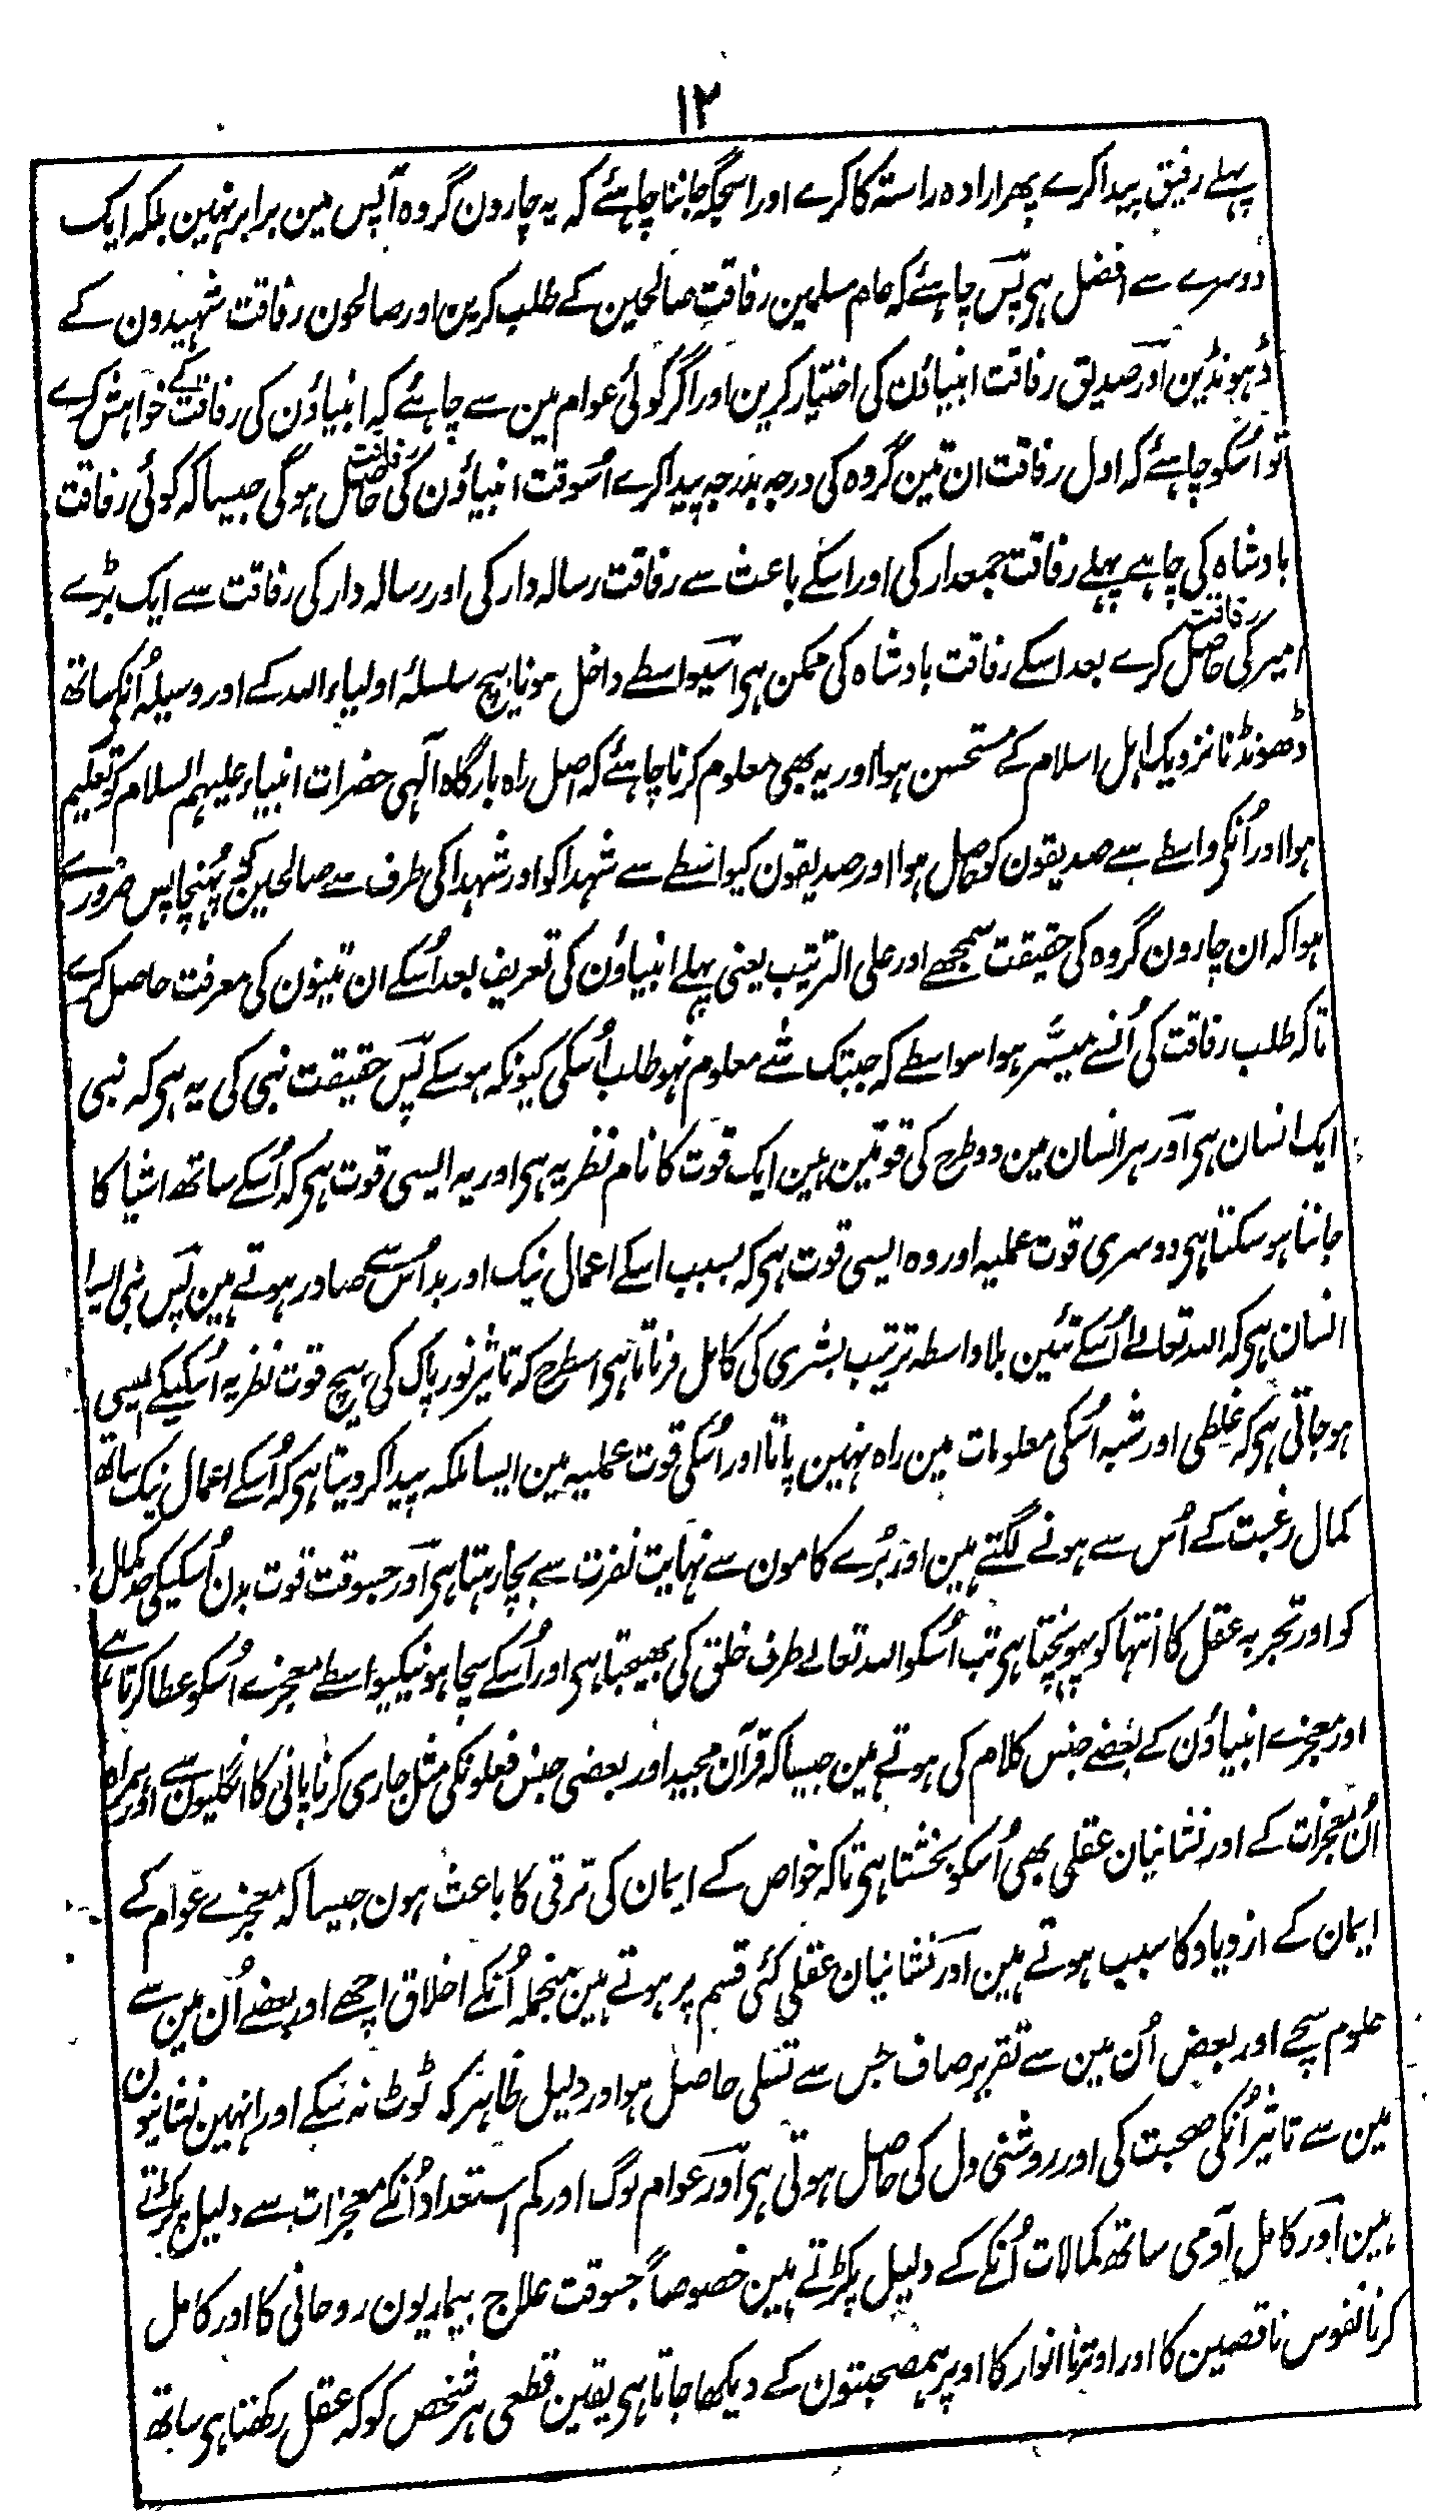 ۱۲
پہلے رفیق پیدا کرے پھر ارادہ راستہ کا کرے اور اسجگہ جاننا چاہئے کہ یہ چارون گروہ آپس مین برابر نہین بلکہ ایک
دوسرے سے افضل ہی پس چاہئے کہ عام مسلمین رفاقت صالحین کے طلب کرین اور صالحون رفاقت شہیدون کے
ڈہونڈین اور صدیق رفاقت انبیاؤن کی اختیار کرین اور اگر کوئی عوام مین سے چاہئے کہ انبیاؤن کی رفاقت کے خواہش کرے
تو اسکو چاہئے کہ اول رفاقت ان تین گروہ کی درجہ بدرجہ پیدا کرے اسوقت انبیاؤن کی رفاقت حاصل ہوگی جیسا کہ کوئی رفاقت
بادشاہ کی چاہے پہلے رفاقت جمعدار کی اور اسکے باعث سے رفاقت رسالہ دار کی اور رسالہ دار کی رفاقت سے ایک بڑے
امیر کی رفاقت حاصل کرے بعد اسکے رفاقت بادشاہ کی ممکن ہی اسیواسطے داخل ہونا بیچ سلسلۂ اولیاء اللہ کے اور وسیلہ اُنکے ساتھ
ڈھونڈنا نزدیک اہل اسلام کے مستحسن ہوا اور یہ بھی معلوم کرنا چاہئے کہ اصل راہ بارگاہ آلہی حضرات انبیاء علیہم السلام کو تعلیم
ہوا اور اُنکی واسطے سے صدیقون کو حاصل ہوا اور صدیقون کیواسطے سے شہدا کو اور شہدا کی طرف سے صالحین کو پُہنچا پس ضرور ہے
ہوا کہ ان چارون گروہ کی حقیقت سمجھے اور علی الترتیب یعنی پہلے انبیاؤن کی تعریف بعد اُسکے ان تینون کی معرفت حاصل کرے
تاکہ طلب رفاقت کی اُنسے میسّر ہو اسواسطے کہ جبتک شے معلوم نہو طلب اُسکی کیونکر ہوسکے پس حقیقت نبی کی یہ ہی کہ نبی
ایک انسان ہی اور ہر انسان مین دو طرح کی قوتین ہین ایک قوت کا نام نظریہ ہی اور یہ ایسی قوت ہی کہ اُسکے ساتھ اشیا کا
جاننا ہوسکتا ہی دوسری قوت عملیہ اور وہ ایسی قوت ہی کہ بسبب اسکے اعمال نیک اور بد اُس سے صادر ہوتے ہین پس نبی ایسا
انسان ہی کہ اللہ تعالے اُسکے تئین بلا واسطہ ترتیب بشری کی کامل فرماتا ہی اسطرح کہ تاثیر نور پاک کی بیچ قوت نظریہ اُسکیکے ایسی
ہوجاتی ہی کہ غلطی اور شبہ اُسکی معلومات مین راہ نہین پاتا اور اُسکی قوت عملیہ مین ایسا ملکہ پیدا کر دیتا ہی کہ اُسکے اعمال نیک ساتھ
کمال رغبت کے اُس سے ہونے لگتے ہین اور بُرے کامون سے نہایت نفرت سے بچا رہتا ہی اور جسوقت قوت بدن اُسکیکی حد کمال
کو اور تجربہ عقل کا انتہا کو پہونچتا ہی تب اُسکو اللہ تعالے طرف خلق کی بھیجتا ہی اور اُسکے سچا ہونیکیواسطے معجزے اُسکو عطا کرتا ہے
اور معجزے انبیاؤن کے بعضے جنس کلام کی ہوتے ہین جیسا کہ قرآن مجید اور بعضی جنس فعلونکی مثل جاری کرنا پانی کا انگلیون سے اور ہمراہ
اُن معجزات کے اور نشانیان عقلی بھی اُسکو بخشتا ہی تاکہ خواص کے ایمان کی ترقی کا باعث ہون جیسا کہ معجزے عوام کے
ایمان کے ازدیاد کا سبب ہوتے ہین اور نشانیان عقلی کئی قسم پر ہوتے ہین منجملہ اُنکے اخلاق اچھے اور بعضے اُن مین سے
علوم سچے اور بعض اُن مین سے تقریر صاف جس سے تسلی حاصل ہو اور دلیل ظاہر کہ ٹوٹ نہ سکے اور انہین نشانیون
مین سے تاثیر اُنکی صحبت کی اور روشنی دل کی حاصل ہوتی ہی اور عوام لوگ اور کم استعداد اُنکے معجزات سے دلیل پکڑتے
ہین اور کامل آدمی ساتھ کمالات اُنکے کے دلیل پکڑتے ہین خصوصاً جسوقت علاج بیماریون روحانی کا اور کامل
کرنا نفوس ناقصین کا اور اوترنا انوار کا اوپر ہمصحبتون کے دیکھا جاتا ہی یقین قطعی ہر شخص کو کہ عقل رکھتا ہی ساتھ